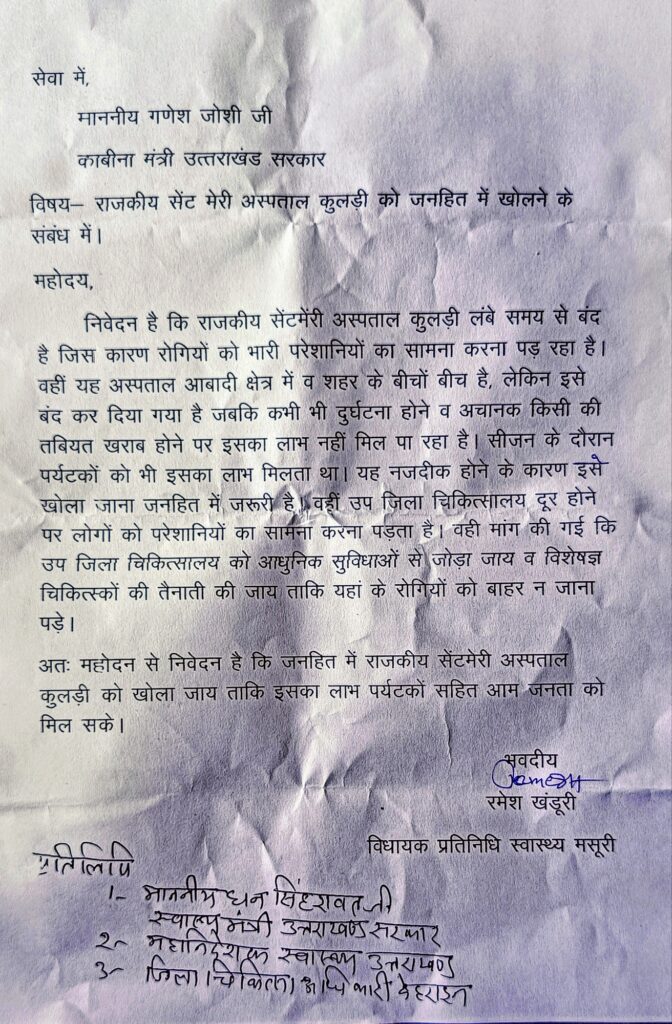 सेवा में,
माननीय गणेश जोशी जी
काबीना मंत्री उत्तराखंड सरकार
विषय– राजकीय सेंट मेरी अस्पताल कुलड़ी को जनहित में खोलने के
संबंध में।
महोदय,
निवेदन है कि राजकीय सेंटमेंरी अस्पताल कुलड़ी लंबे समय से बंद
है जिस कारण रोगियों को भारी परेशानियों का सामना करना पड़ रहा है।
वहीं यह अस्पताल आबादी क्षेत्र में व शहर के बीचों बीच है, लेकिन इसे
बंद कर दिया गया है जबकि कभी भी दुर्घटना होने व अचानक किसी की
तबियत खराब होने पर इसका लाभ नहीं मिल पा रहा है। सीजन के दौरान
पर्यटकों को भी इसका लाभ मिलता था। यह नजदीक होने के कारण इसे
खोला जाना जनहित में जरूरी है। वहीं उप जिला चिकित्सालय दूर होने
पर लोगों को परेशानियों का सामना करना पड़ता है। वही मांग की गई कि
उप जिला चिकित्सालय को आधुनिक सुविधाओं से जोड़ा जाय व विशेषज्ञ
चिकित्स्कों की तैनाती की जाय ताकि यहां के रोगियों को बाहर न जाना
पड़े।
अतः महोदन से निवेदन है कि जनहित में राजकीय सेंटमेरी अस्पताल
कुलड़ी को खोला जाय ताकि इसका लाभ पर्यटकों सहित आम जनता को
मिल सके।
भवदीय
रमेश खंडूरी
विधायक प्रतिनिधि स्वास्थ्य मसूरी
प्रतिलिपि
1- माननीय धन सिंह रावत जी
स्वास्थ्य मंत्री उत्तराखण्ड सरकार
2- महानिदेशक स्वास्थ्य उत्तराखण्ड
3- जिला चिकित्सा अधिकारी देहरादून